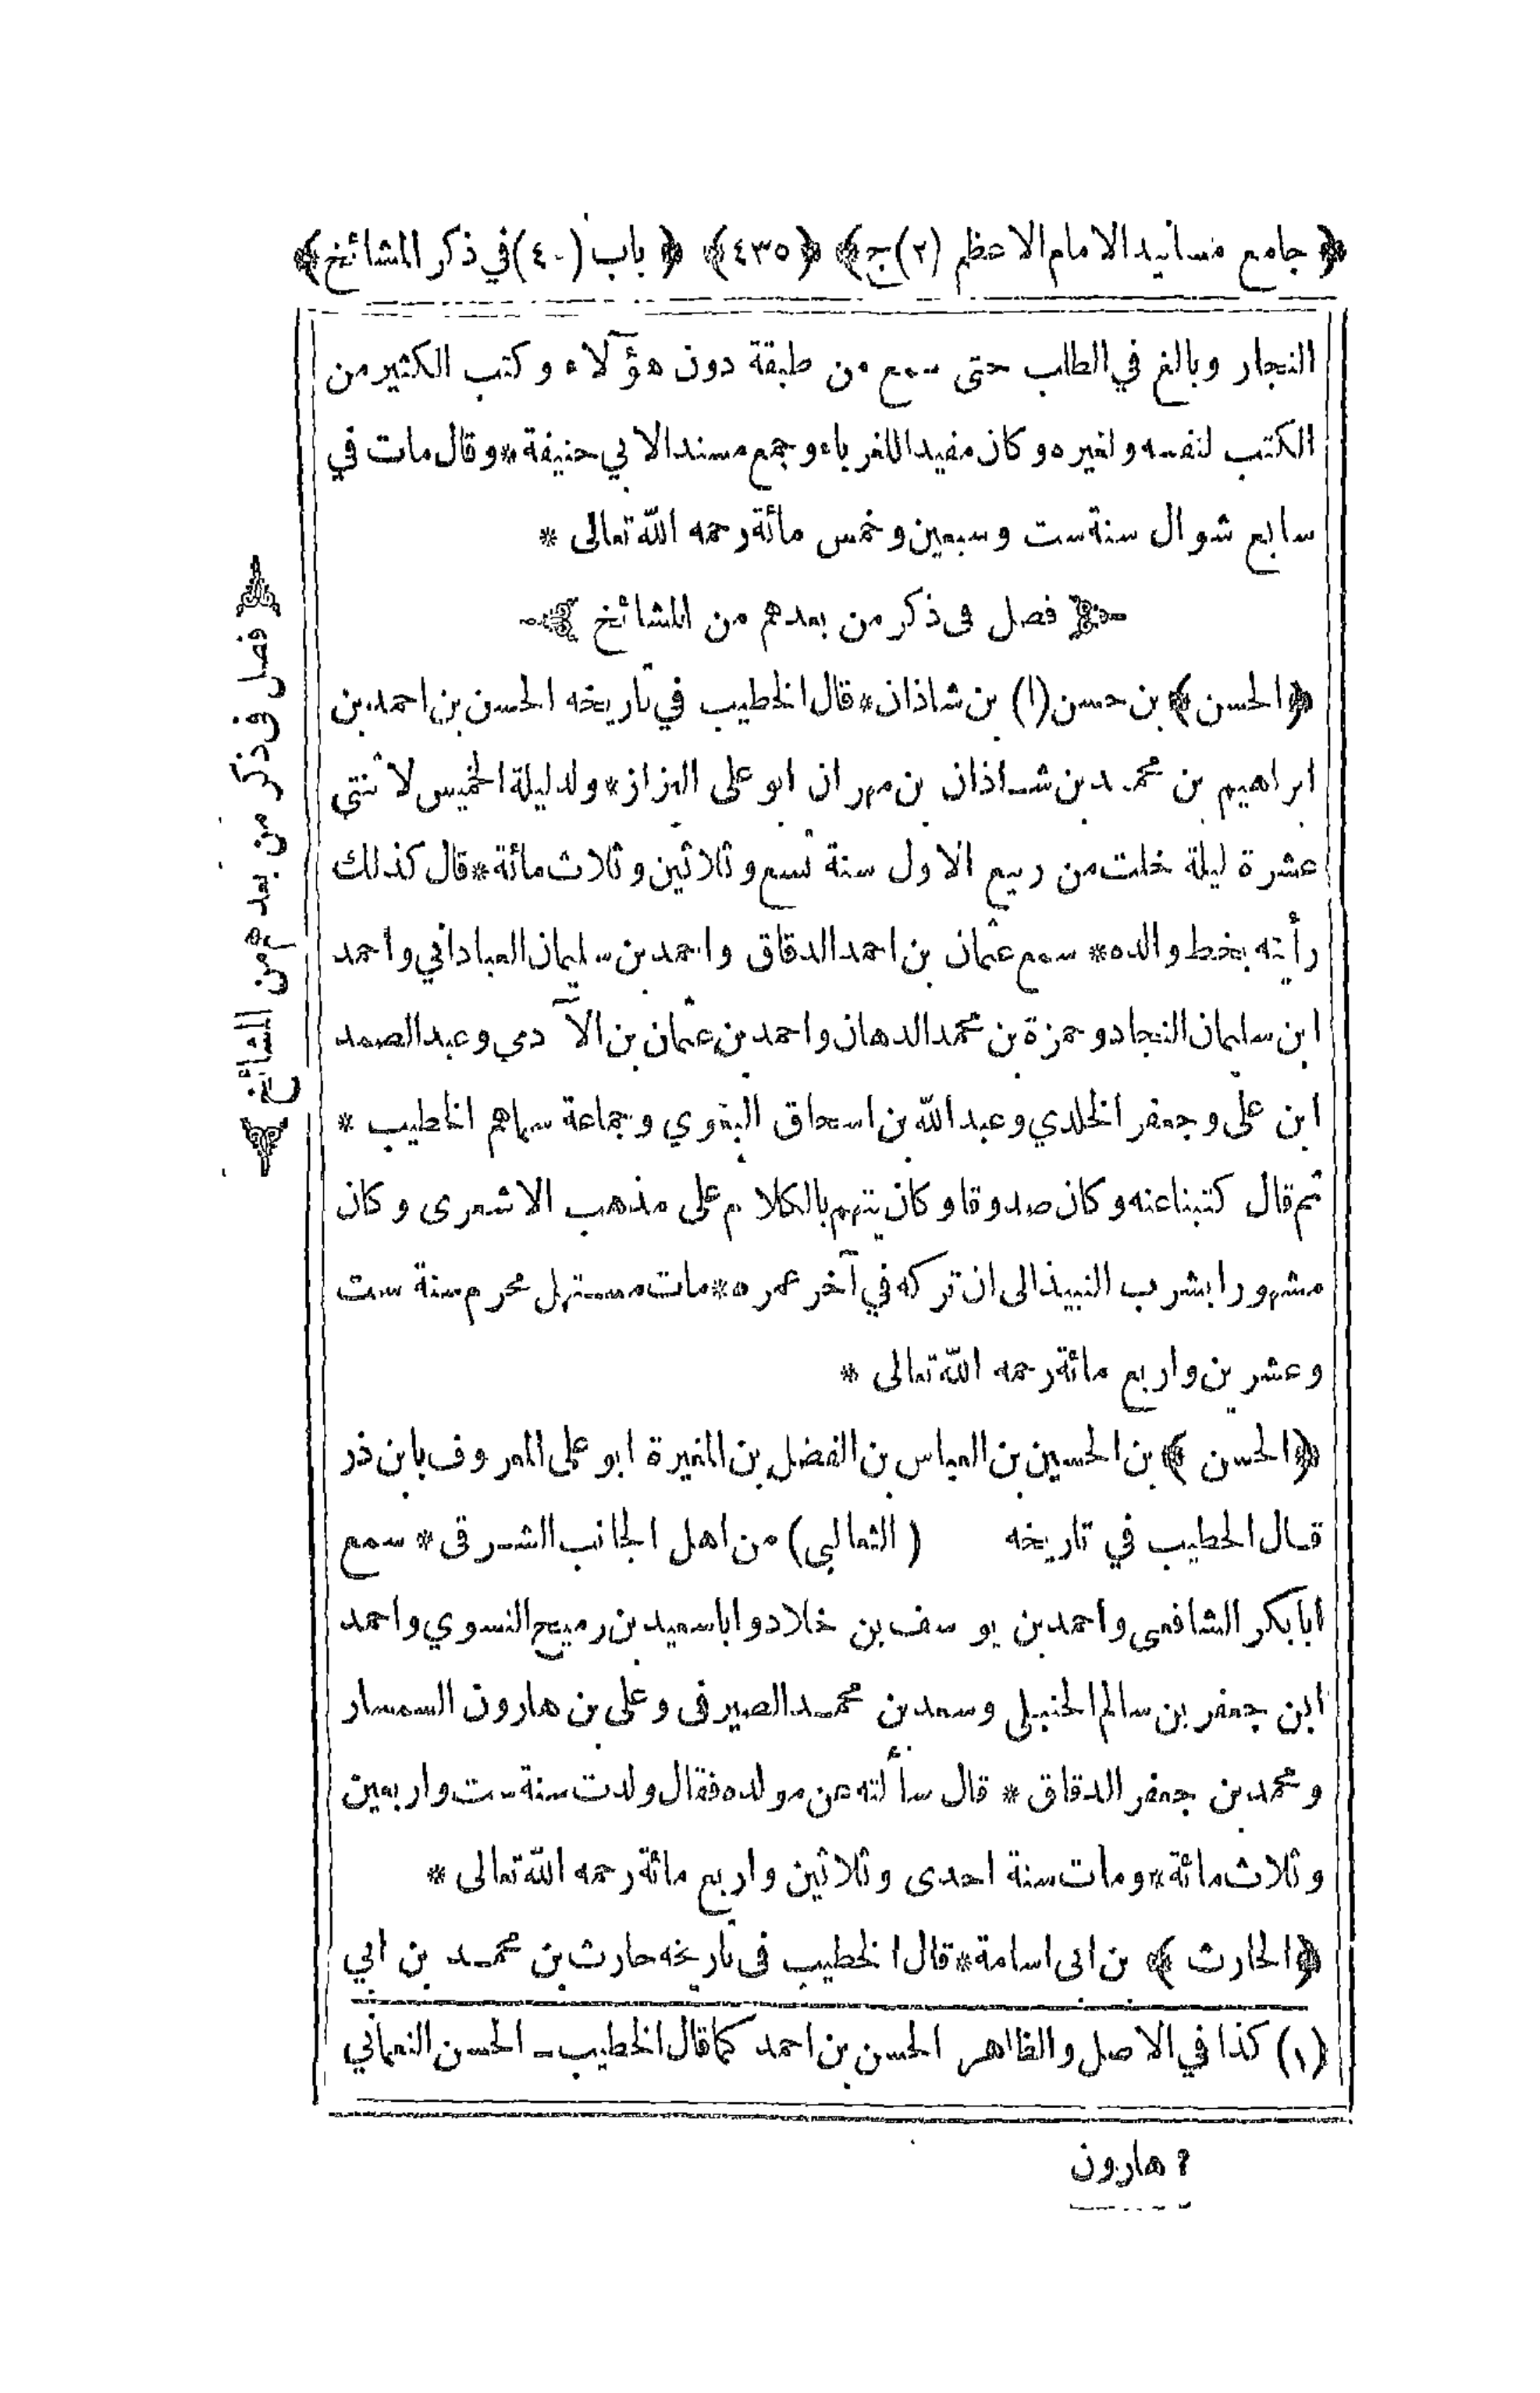 ﴿ جامع مسانيد الامام الاعظم (٢) ج﴾ ﴿٤٣٥﴾ ﴿ باب (٤٠) في ذكر المشائخ﴾
النجار وبالغ في الطلب حتى سمع من طبقة دون هؤلآء وكتب الكثير من
الكتب لنفسه ولغيره وكان مفيداللغرباء وجمع مسندالابي حنيفة * وقال مات في
سابع شوال سنة ست وسبعين وخمس مائة رحمه الله تعالى *
فصل فى ذكر من بعدهم من المشائخ
﴿الحسن﴾ بن حسن (١) بن شاذان * قال الخطيب في تاريخه الحسن بن احمد بن
ابراهيم بن محمد بن شاذان بن مهران ابو على البزاز * ولد ليلة الخميس لاثنتى
عشرة ليلة خلت من ربيع الاول سنة تسع وثلاثين وثلاث مائة * قال كذلك
رأيته بخط والده * سمع عثمان بن احمد الدقاق واحمد بن سليمان العباداني واحمد
ابن سليمان النجاد وحمزة بن محمد الدهان واحمد بن عثمان بن الآدمي وعبد الصمد
ابن على وجعفر الخلدي وعبد الله بن اسحاق البغوي وجماعة سماهم الخطيب *
ثم قال كتبنا عنه وكان صدوقا وكان يتهم بالكلام على مذهب الاشعرى وكان
مشهورا بشرب النبيذ الى ان تركه في آخر عمره * مات مستهل محرم سنة ست
وعشرين واربع مائة رحمه الله تعالى *
﴿الحسن ﴾ بن الحسين بن العباس بن الفضل بن المغيرة ابو على المعروف بابن ذر
قال الخطيب في تاريخه ( الثعالبي) من اهل الجانب الشرقى * سمع
ابابكر الشافعى واحمد بن يوسف بن خلاد واباسعيد بن رميح النسوي واحمد
ابن جعفر بن سالم الحنبلى وسعد بن محمد الصيرفى وعلى بن هارون السمسار
ومحمد بن جعفر الدقاق * قال سألته عن مولده فقال ولدت سنة ست واربعين
وثلاث مائة * ومات سنة احدى وثلاثين واربع مائة رحمه الله تعالى *
﴿الحارث ﴾ بن ابى اسامة * قال الخطيب فى تاريخه حارث بن محمد بن ابي
(١) كذا في الاصل والظاهر الحسن بن احمد كما قال الخطيب ـ الحسن النعماني
هارون
﴿ فصل فى ذكر من بعدهم من المشائخ ﴾